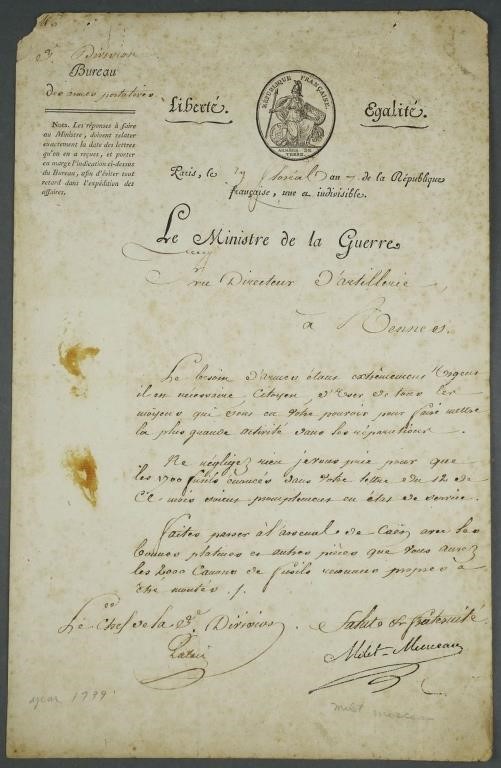 2.e Division
Bureau
des armes portatives
NOTA. Les réponses à faire
au Ministre, doivent relater
exactement la date des lettres
qu'on en a reçues, et porter
en marge l'indication ci-dessus
du Bureau, afin d'éviter tout
retard dans l'expédition des
affaires.
Liberté.
RÉPUBLIQUE FRANÇAISE.
ARMÉES DE
TERRE.
Egalité.
Paris, le floréal an 7 de la République
française, une et indivisible.
Le Ministre de la Guerre
Au Directeur d'artillerie
à Rennes.
Le besoin d'armes étant extrêmement Urgent
il est nécessaire, Citoyen, d'User de tous les
moyens qui sont en votre pouvoir pour faire mettre
la plus grande activité dans les réparations.
Ne négligez rien je vous prie pour que
les 1700 fusils énoncés dans votre lettre du 12 de
ce mois soient promptement en état de service.
Faites passer à l'arsenal de Caen avec les
bonnes platines et autres pièces que vous aurez
les 2000 Canons de fusils reconnus propres à
être montés
Le Chef de la 2.e Division
Salut & fraternité
Milet-Mureau
year 1799
milet mureau